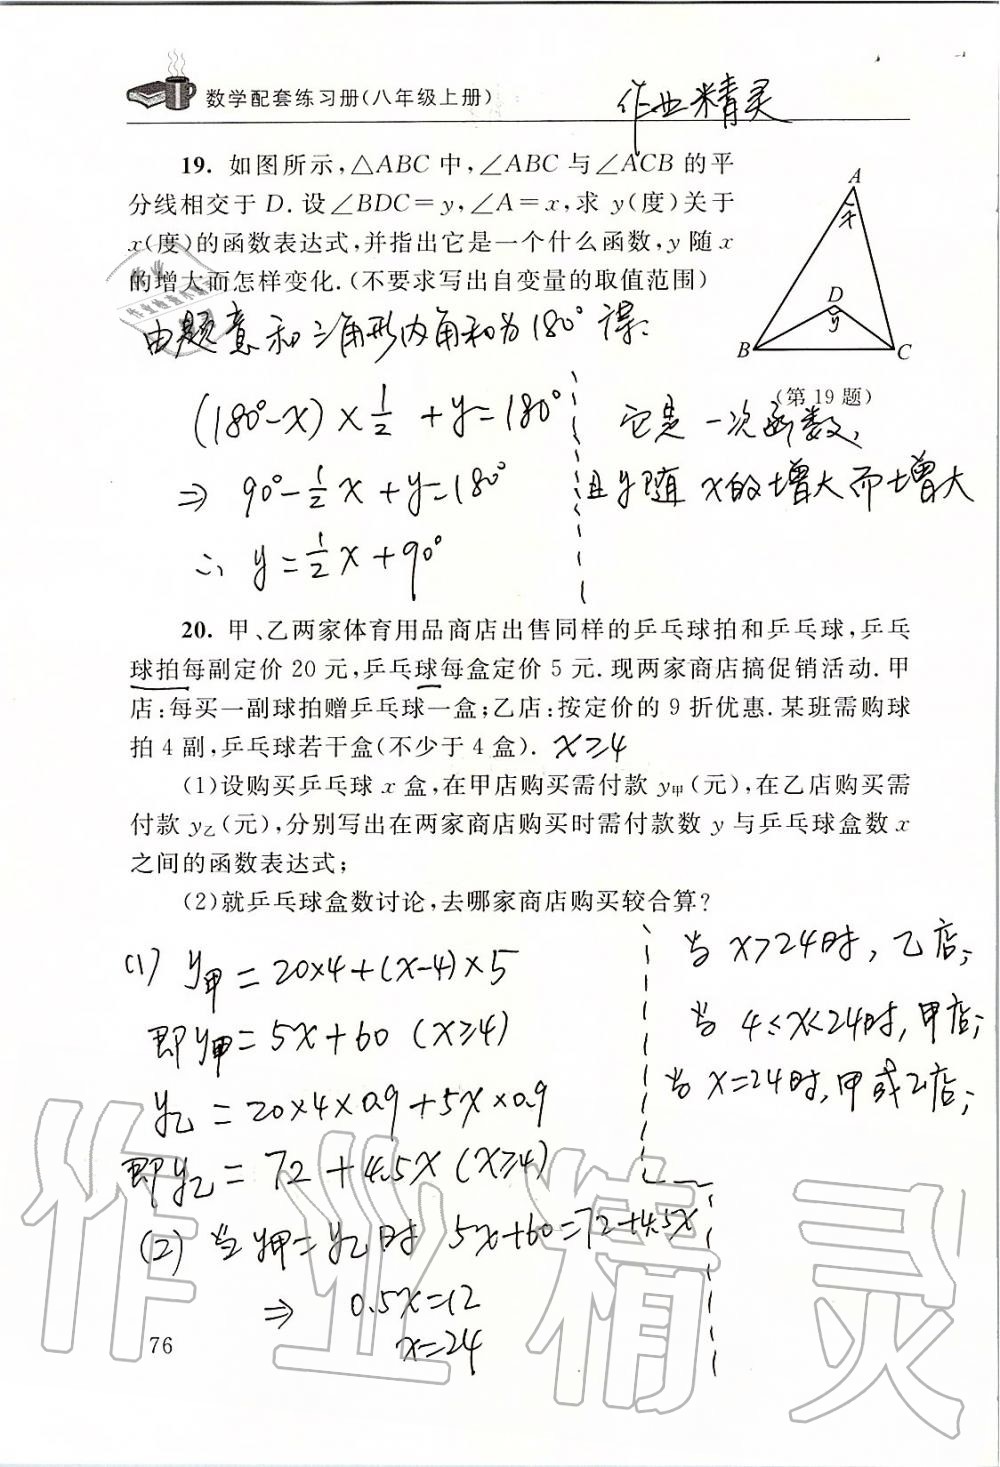 数学配套练习册(八年级上册)
作业精灵
19. 如图所示,△ABC 中,∠ABC 与∠ACB 的平
分线相交于 D. 设∠BDC=y,∠A=x,求 y(度)关于
x(度)的函数表达式,并指出它是一个什么函数,y 随 x
的增大而怎样变化.(不要求写出自变量的取值范围)
A
x
D
y
B
C
(第 19 题)
由题意和三角形内角和为180°得:
(180°-x)×1/2+y=180°
⇒ 90°-1/2x+y=180°
∴ y=1/2x+90°
它是一次函数,
且y随x的增大而增大
20. 甲、乙两家体育用品商店出售同样的乒乓球拍和乒乓球,乒乓
球拍每副定价 20 元,乒乓球每盒定价 5 元. 现两家商店搞促销活动. 甲
店:每买一副球拍赠乒乓球一盒;乙店:按定价的 9 折优惠. 某班需购球
拍 4 副,乒乓球若干盒(不少于 4 盒). x≥4
(1)设购买乒乓球 x 盒,在甲店购买需付款 y甲(元),在乙店购买需
付款 y乙(元),分别写出在两家商店购买时需付款数 y 与乒乓球盒数 x
之间的函数表达式;
(2)就乒乓球盒数讨论,去哪家商店购买较合算?
(1) y甲=20×4+(x-4)×5
即y甲=5x+60 (x≥4)
y乙=20×4×0.9+5x×0.9
即y乙=72+4.5x (x≥4)
(2) 当y甲=y乙时 5x+60=72+4.5x
⇒ 0.5x=12
x=24
当x>24时,乙店;
当4≤x<24时,甲店;
当x=24时,甲或乙店;
76
作业精灵